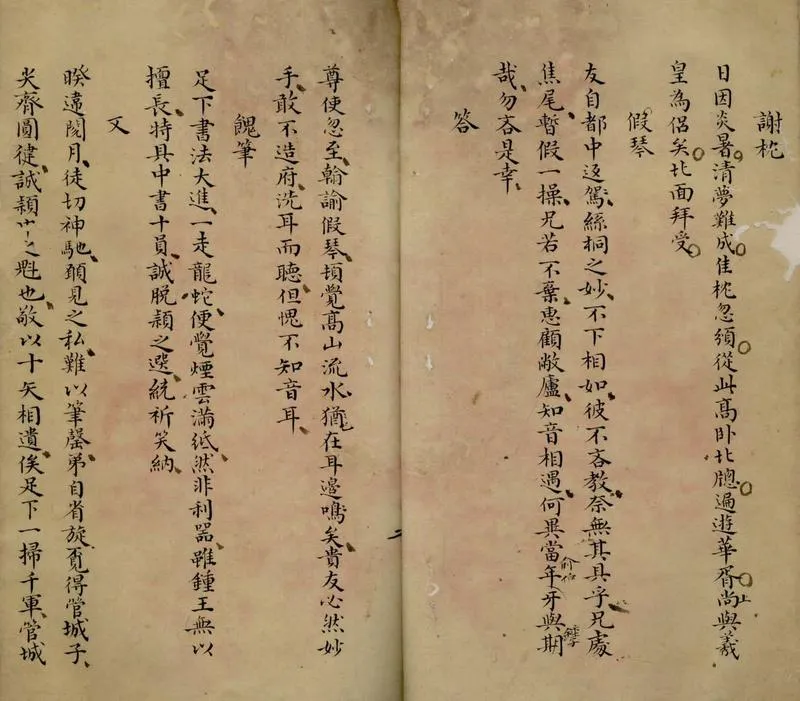 謝枕
日因炎暑清夢難成佳枕忽頒從此高臥北牕遍遊華胥尚與羲
皇為侶矣北面拜受
假琴
友自都中返駕絲桐之妙不下相如彼不吝教奈無其具乎兄處
焦尾暫假一操兄若不棄惠顧敝廬知音相遇何異當年牙與期
哉勿吝是幸
答
尊使忽至翰諭假琴頓覺高山流水猶在耳邊鳴矣貴友必然妙
手敢不造府洗耳而聽但愧不知音耳
餽筆
足下書法大進一走龍蛇便覺煙雲滿紙然非利器雖鍾王無以
擅長特具中書十員誠脫穎之選統祈笑納
又
睽違閱月徒切神馳願見之私難以筆罄弟自省旋覓得管城子
尖齊圓健誠穎中之魁也敬以十矢相遺俟足下一掃千軍管城